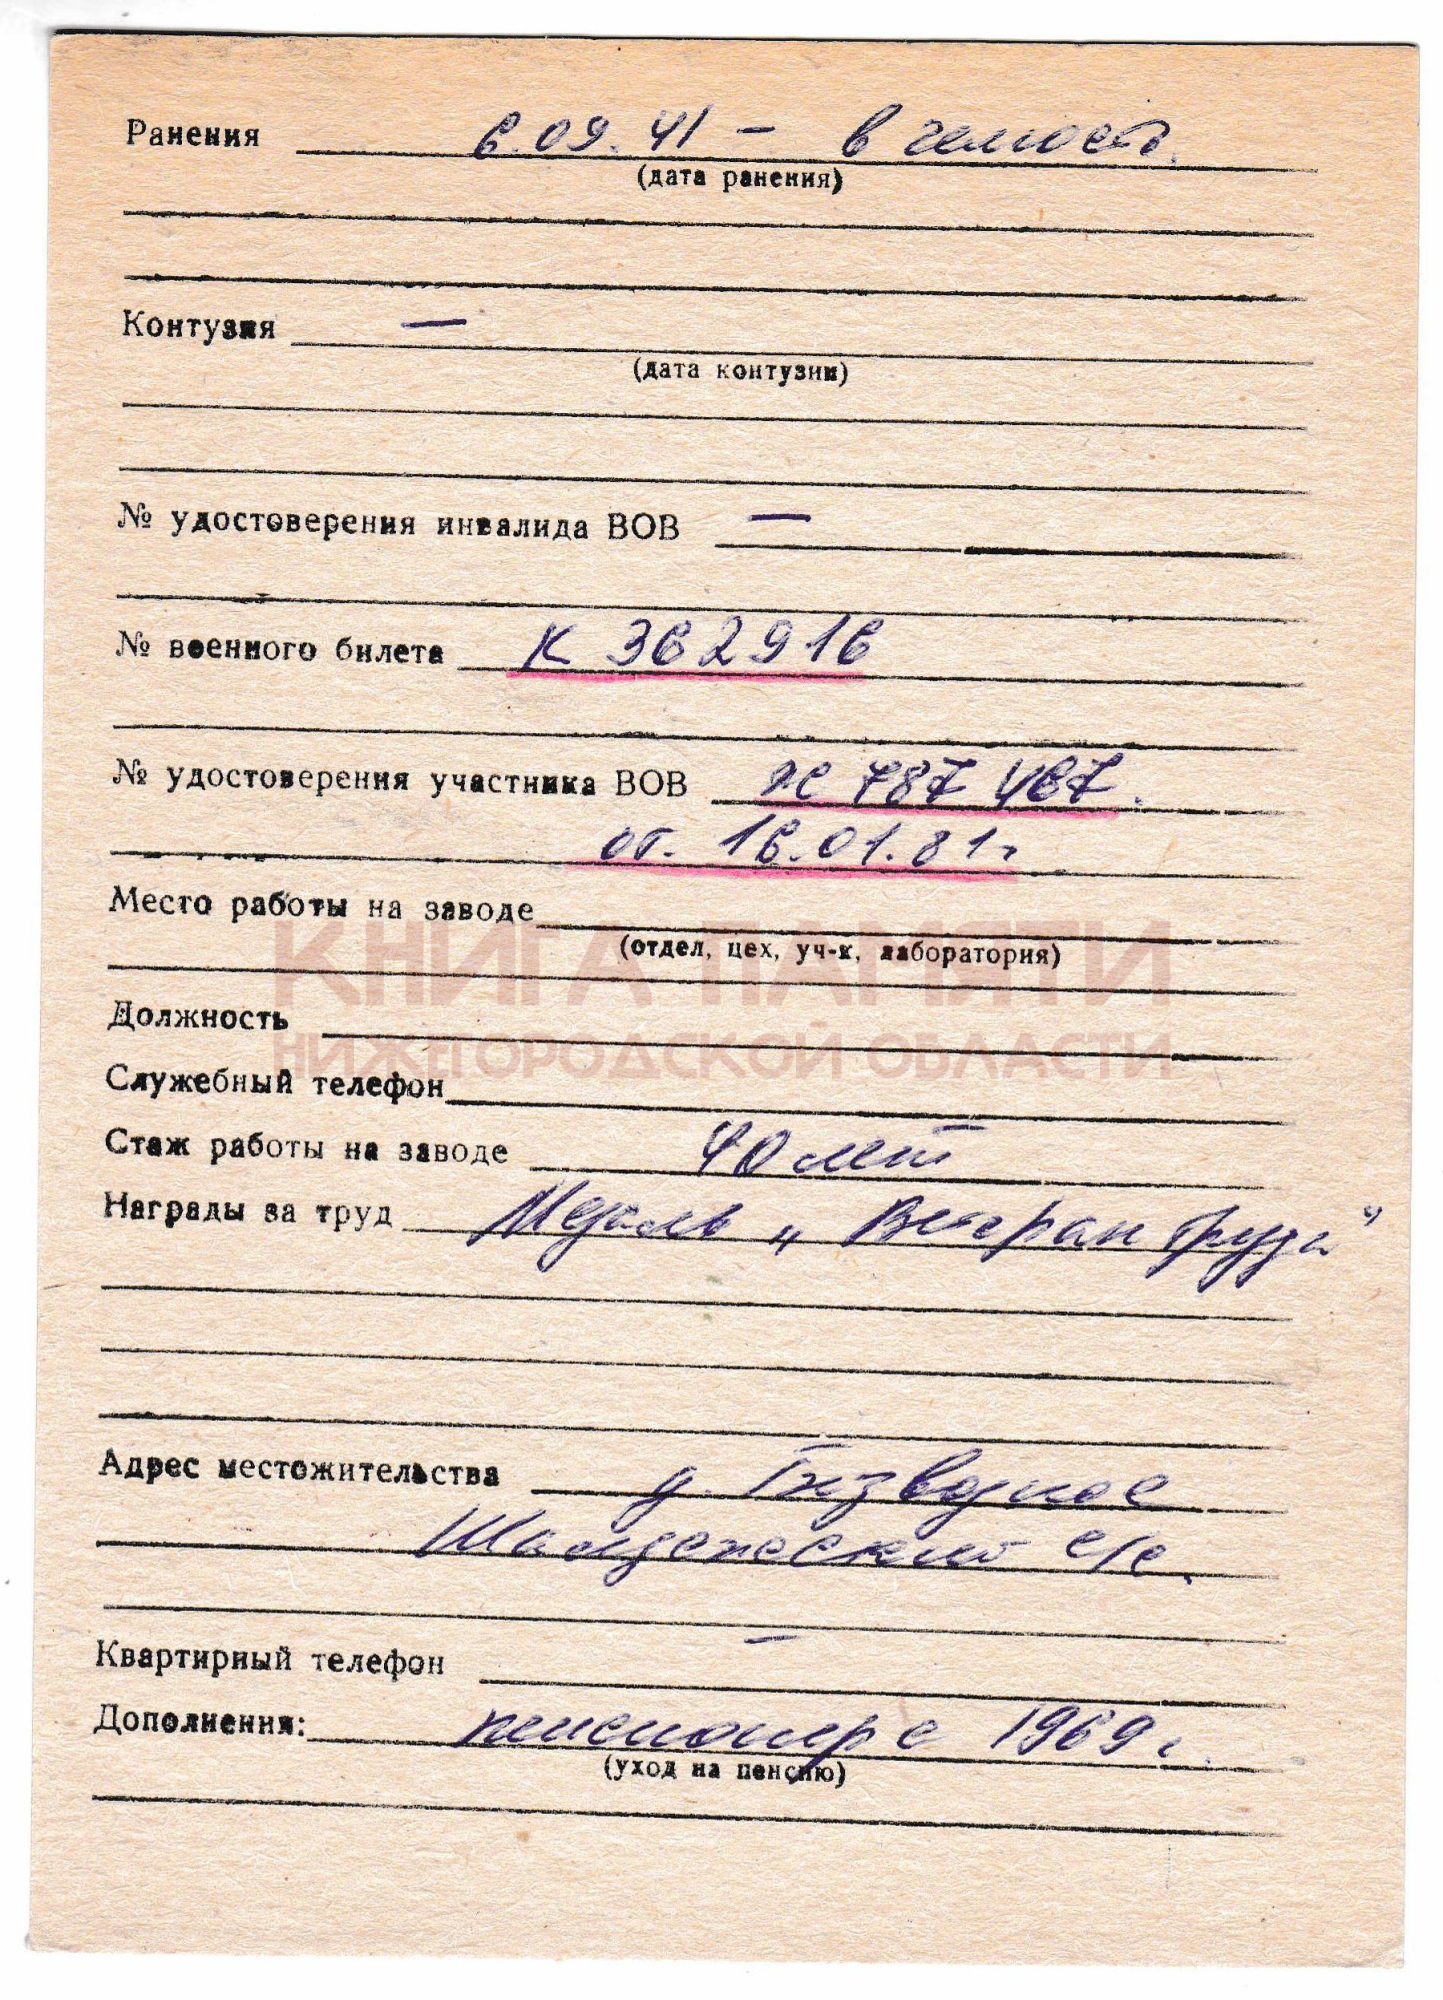 Ранения 6.09.41 – в челюсть.
(дата ранения)
Контузия —
(дата контузии)
№ удостоверения инвалида ВОВ —
№ военного билета К 362916
№ удостоверения участника ВОВ Ж 787 467.
от. 16.01.81г
Место работы на заводе
(отдел, цех, уч-к, лаборатория)
КНИГА ПАМЯТИ
Должность
НИЖЕГОРОДСКОЙ ОБЛАСТИ
Служебный телефон
Стаж работы на заводе 40 лет
Награды за труд Медаль „Ветеран труда"
Адрес местожительства д. Безводное
Шалдежский с/с.
Квартирный телефон —
Дополнения: пенсионер с 1969 г.
(уход на пенсию)